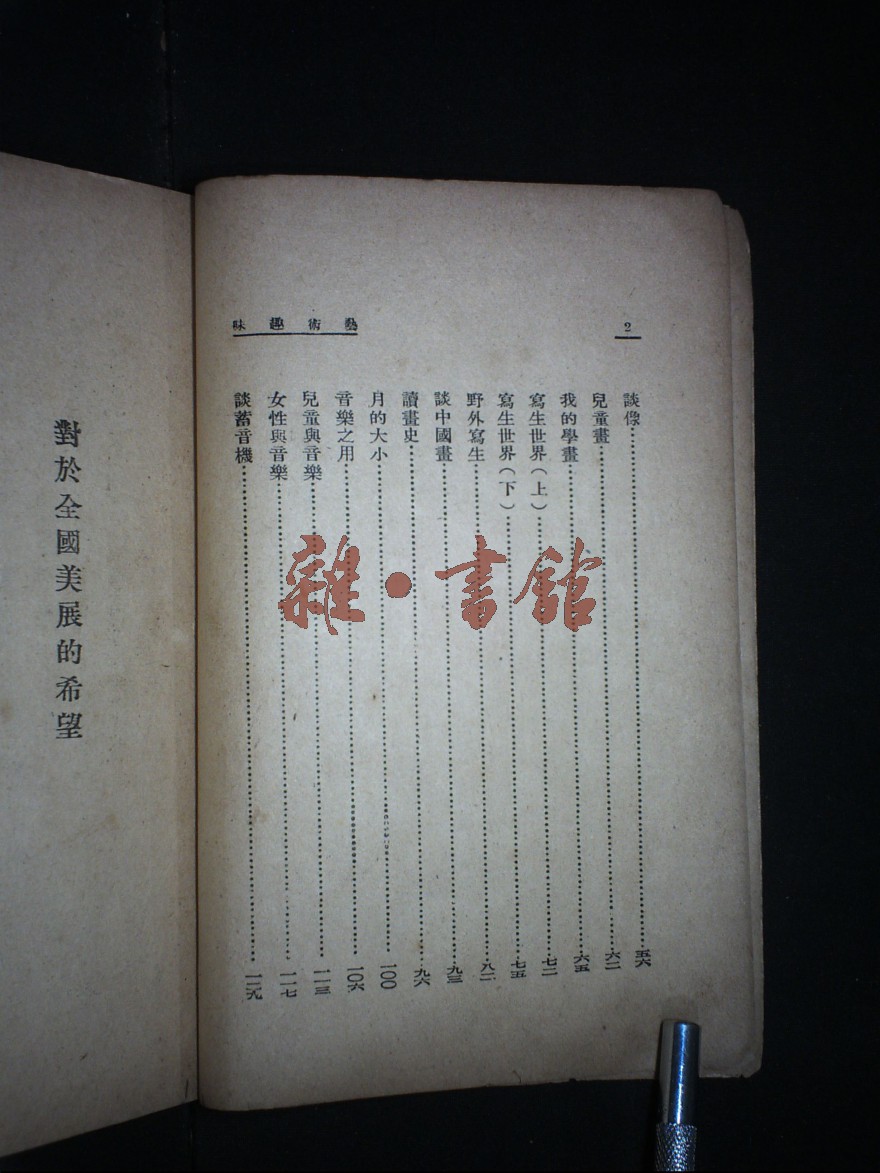 藝術趣味
2
談像……56
兒童畫……六二
我的學畫……六五
寫生世界（上）……七二
寫生世界（下）……七五
野外寫生……八二
談中國畫……九三
讀畫史……九六
月的大小……一〇〇
音樂之用……一〇六
兒童與音樂……一一三
女性與音樂……一一七
談蓄音機……一二九
對於全國美展的希望
雜·書館